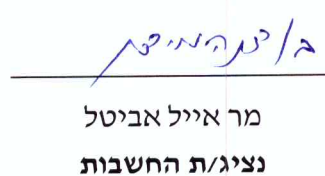 מר אייל אביטל
נציג/ת החשבות